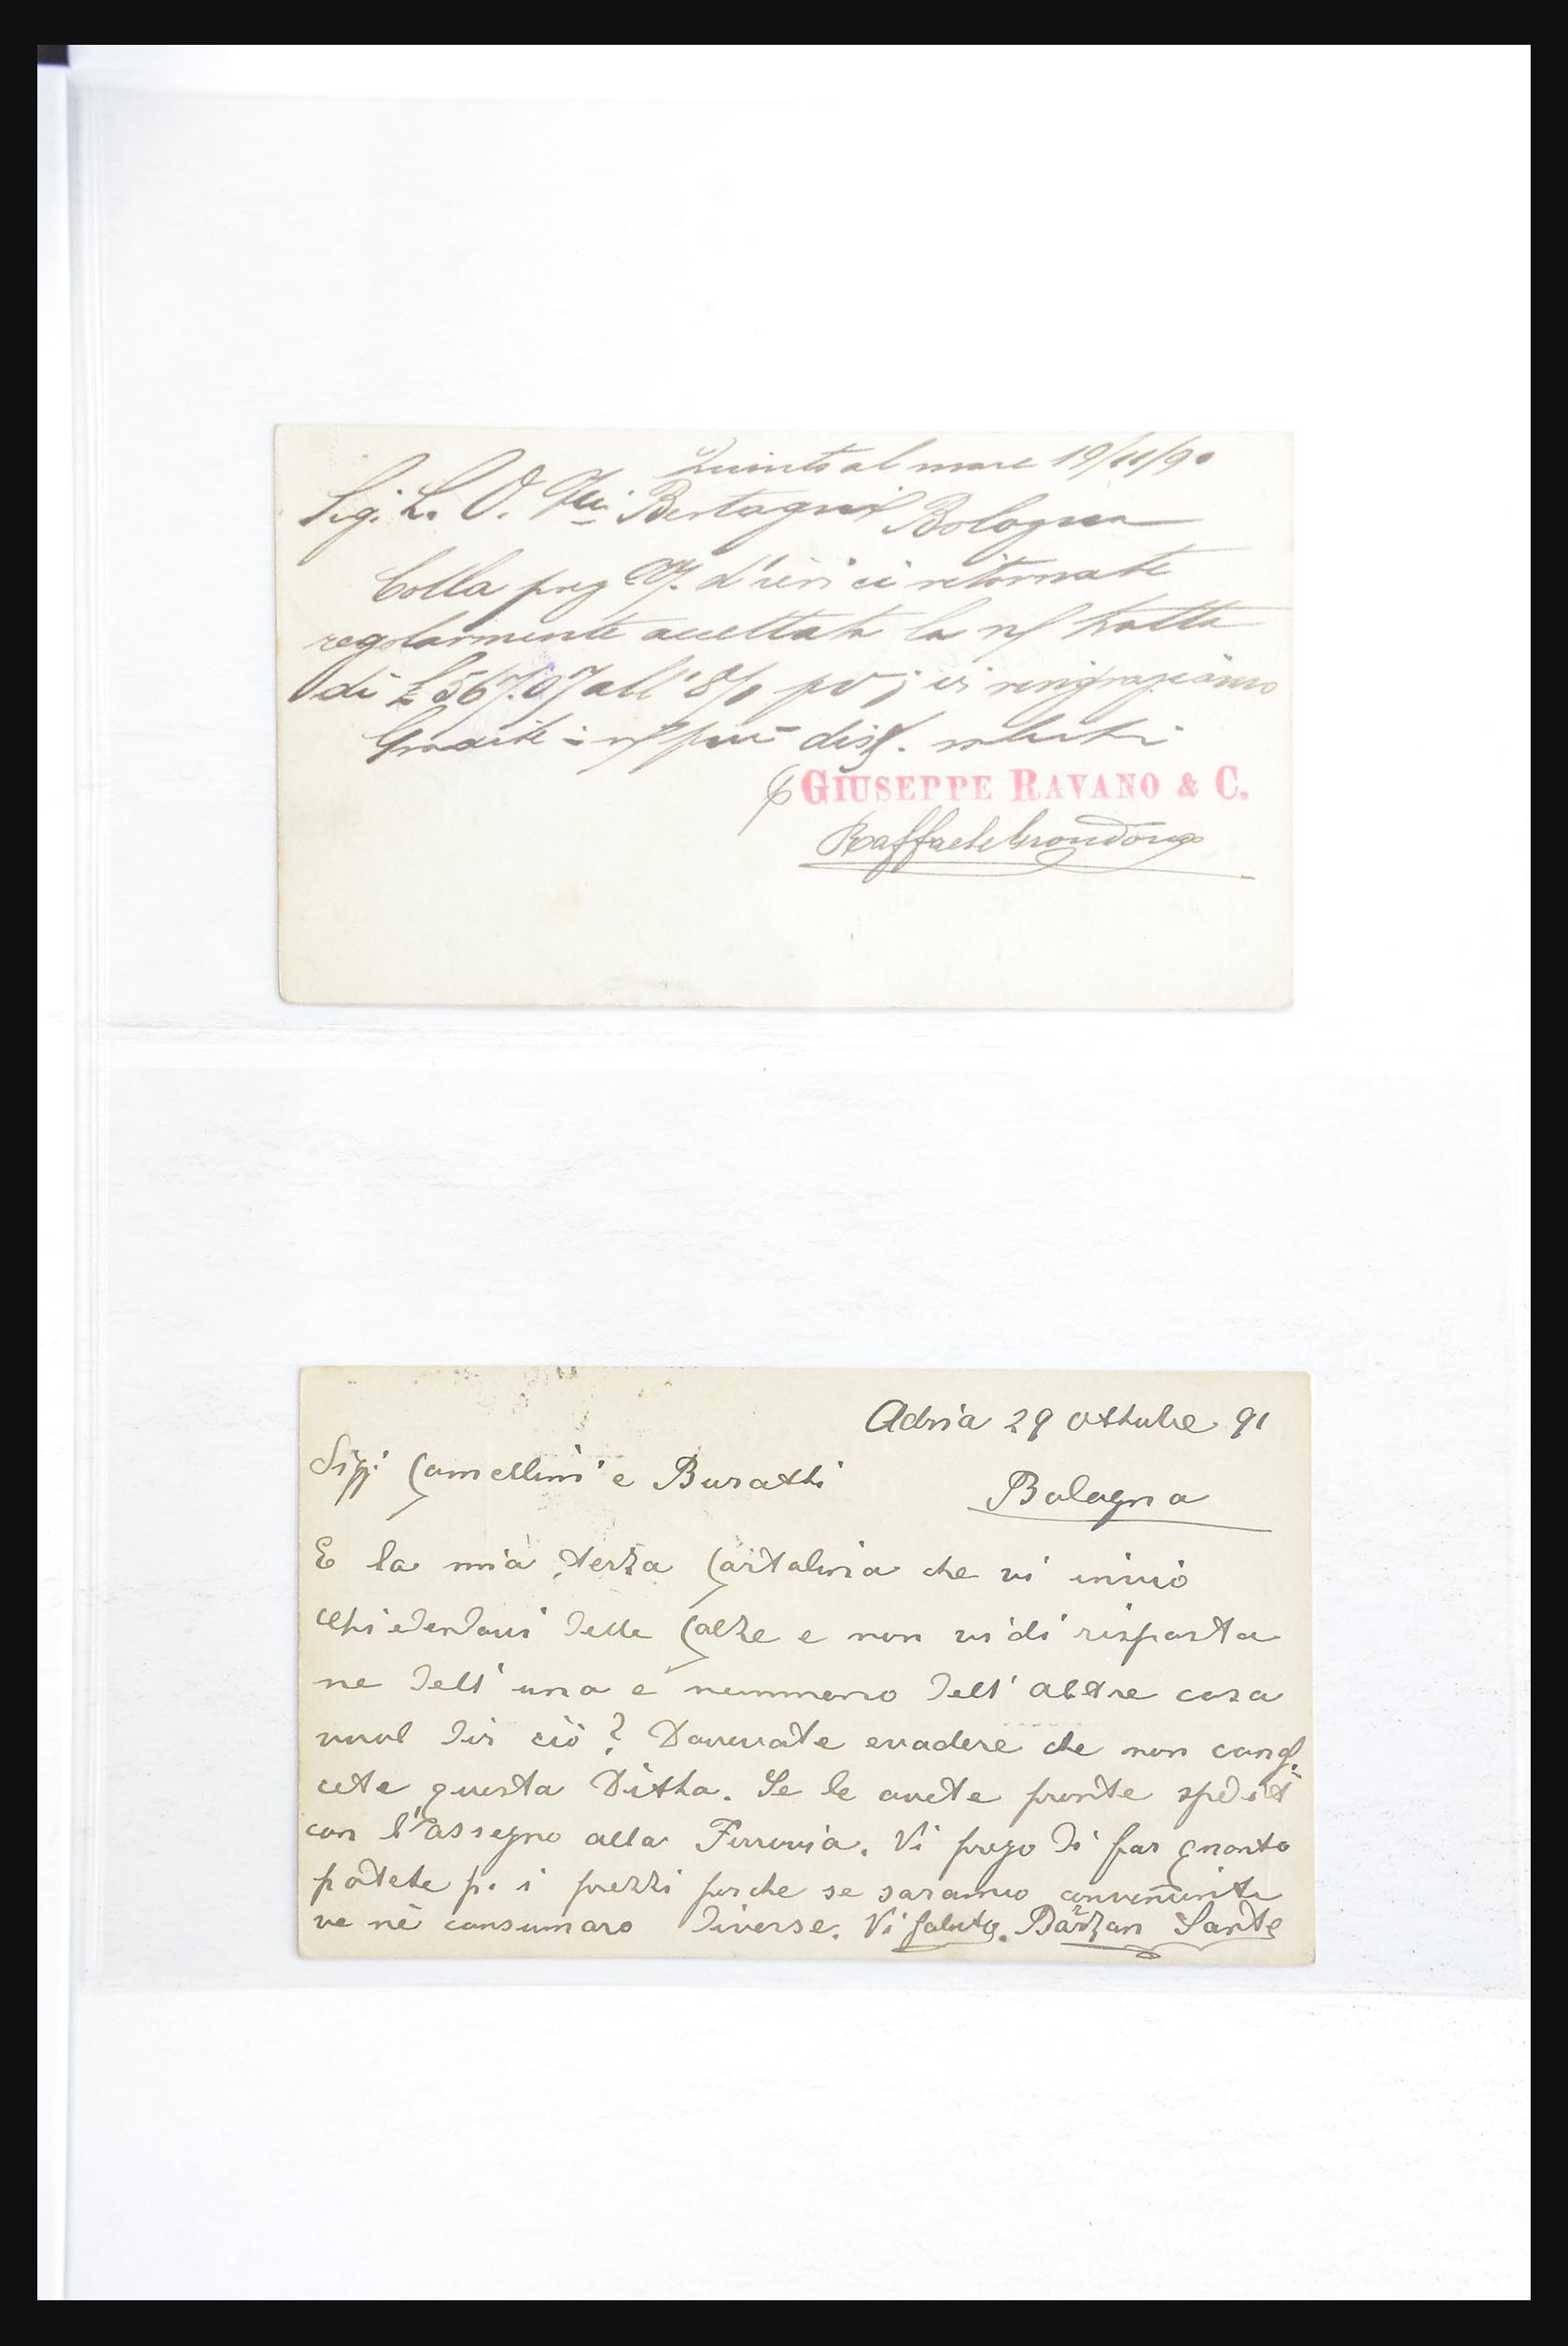 Quinto al mare 19/11/90
Sig. L. O. F.lli Bertagni Bologna
Colla preg d'ieri ci ritornate
regolarmente accettata la n/ tratta
di £ 567.07 all' 8/ pv; vi ringraziamo
Gradite i n/ più dist. saluti
GIUSEPPE RAVANO & C.
Raffaele
Adria 29 Ottobre 91
Sigg.i Camellini e Buratti
Bologna
E la mia terza Cartolina che vi invio
chiedendovi delle Calze e non vidi risposta
ne dell' una e nemmeno dell' altre cosa
vuol dir ciò? Dovevate evadere che non
cete questa Ditta. Se le avete pronte spedit
con l'assegno alla Ferrovia. Vi prego di far quanto
potete p. i prezzi perche se saranno convenienti
ve ne consumaro diverse. Vi Saluto. Barzan Sante